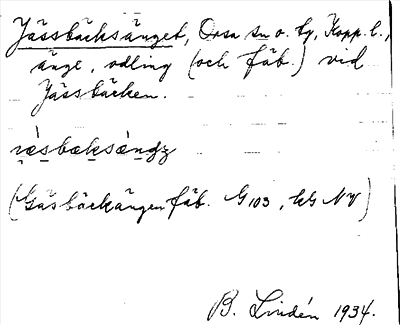 Jässbäcksänget, Orsa sn o. tg, Kopp. l.,
änge, odling (och fäb.) vid
Jässbäcken.
(Gäsbäckängen fäb. G103, kG NV)
B. Lindén 1934.